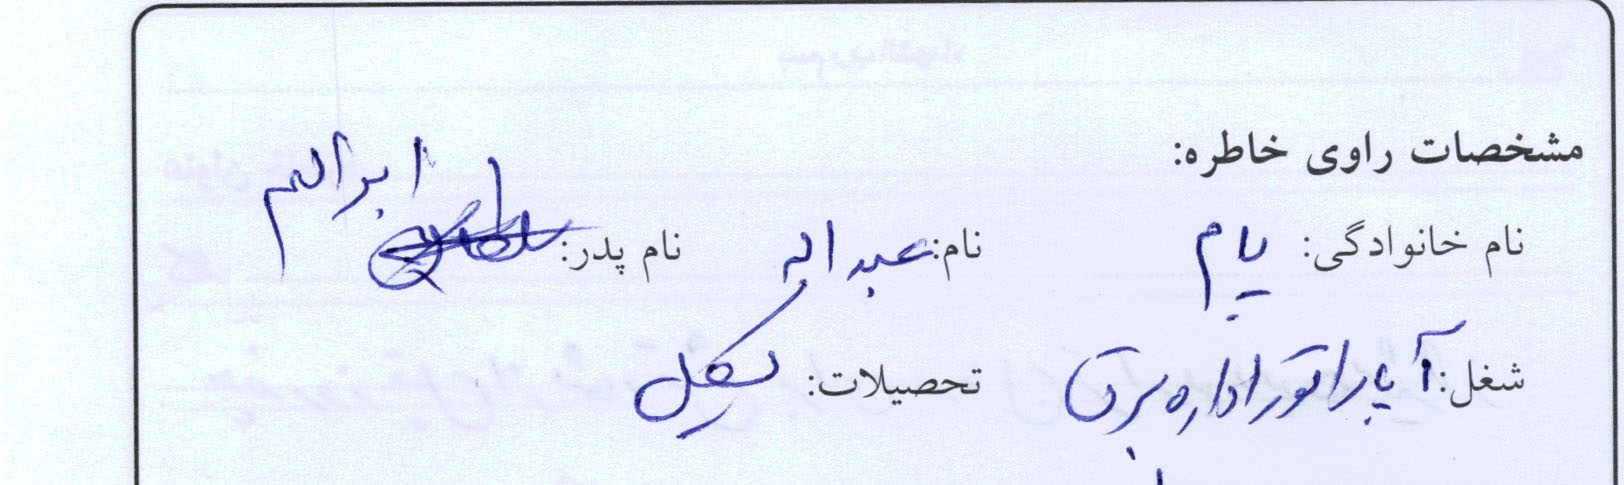 مشخصات راوی خاطره:
نام خانوادگی: پام نام: عبداله نام پدر: ابراهیم
شغل: آپاراتور اداره برق تحصیلات: سیکل